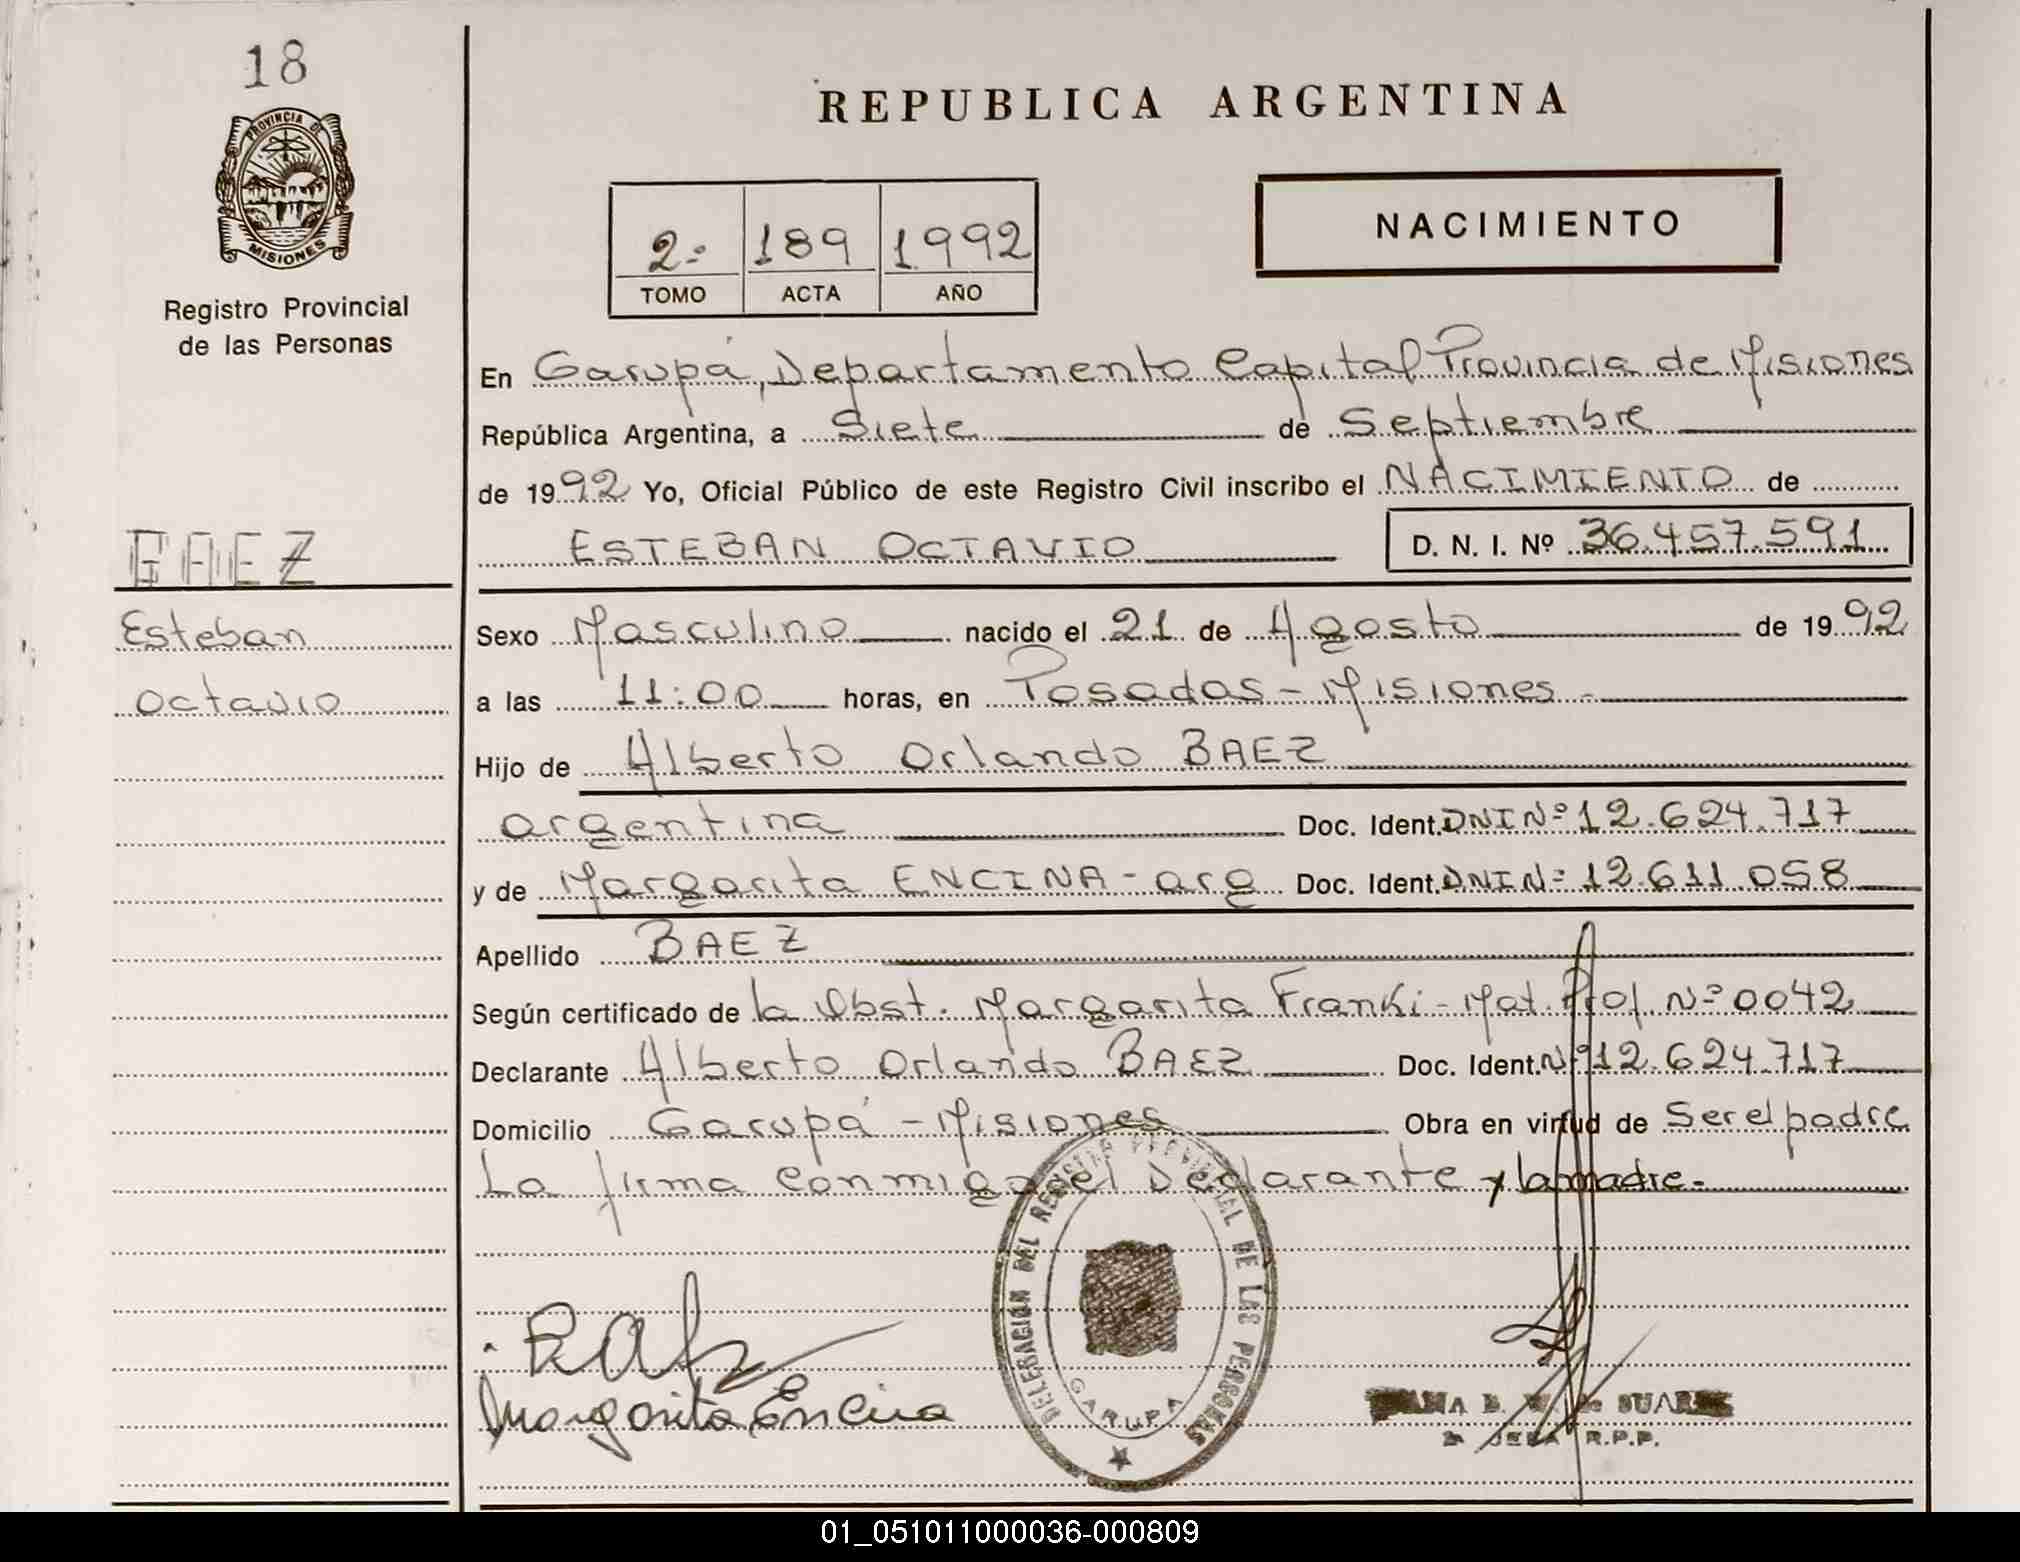 18
PROVINCIA DE
MISIONES
Registro Provincial
de las Personas
BAEZ
Esteban
Octavio
REPUBLICA ARGENTINA
2º 189 1992
TOMO ACTA AÑO
NACIMIENTO
En Garupá, Departamento Capital Provincia de Misiones
República Argentina, a Siete de Septiembre
de 1992 Yo, Oficial Público de este Registro Civil inscribo el NACIMIENTO de
ESTEBAN OCTAVIO D. N. I. Nº 36.457.591
Sexo Masculino nacido el 21 de Agosto de 1992
a las 11:00 horas, en Posadas - Misiones -
Hijo de Alberto Orlando BAEZ
argentina Doc. Ident. DNI Nº 12.624.717
y de Margarita ENCINA - arg Doc. Ident. DNI Nº 12.611.058
Apellido BAEZ
Según certificado de la Obst. Margarita Franki - Mat. Prof. Nº 0042
Declarante Alberto Orlando BAEZ Doc. Ident. Nº 12.624.717
Domicilio Garupá - Misiones Obra en virtud de Ser el padre
La firma conmigo el Declarante y la madre.
DELEGACIÓN DEL REGISTRO PROVINCIAL DE LAS PERSONAS
GARUPA
Margarita Encina
de SUAREZ
JEFA R.P.P.
01_051011000036-000809